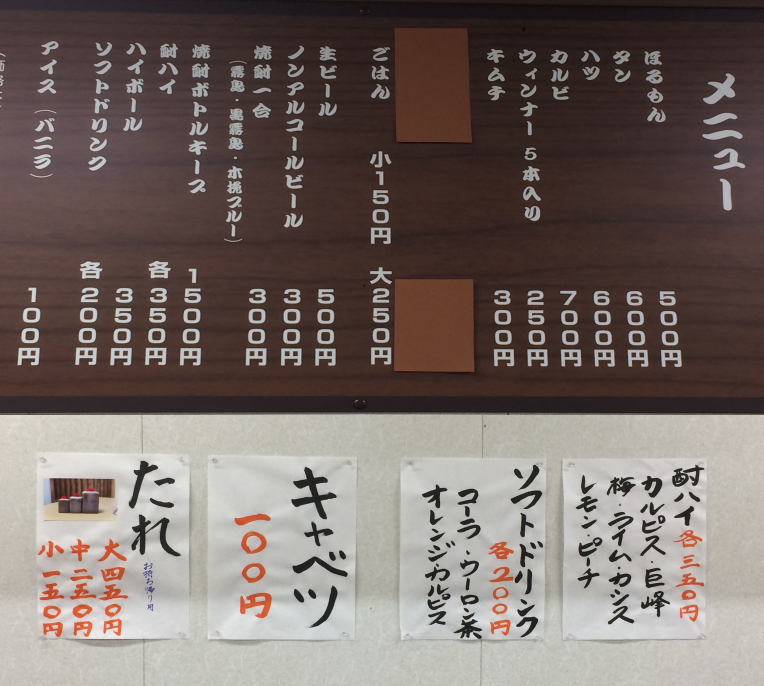 メニュー
ほるもん 500円
タン 600円
ハツ 600円
カルビ 700円
ウィンナー 5本入り 250円
キムチ 300円
ごはん 小150円 大250円
生ビール 500円
ノンアルコールビール 300円
焼酎一合 300円
(霧島・黒霧島・木挽ブルー)
焼酎ボトルキープ 1500円
酎ハイ 各350円
ハイボール 350円
ソフトドリンク 各200円
アイス(バニラ) 100円
酎ハイ 各三五〇円
カルピス・巨峰
梅・ライム・カシス
レモン・ピーチ
ソフトドリンク
各200円
コーラ・ウーロン茶
オレンジ・カルピス
キャベツ
一〇〇円
たれ
お持ち帰り用
大 四五〇円
中 二五〇円
小 一五〇円